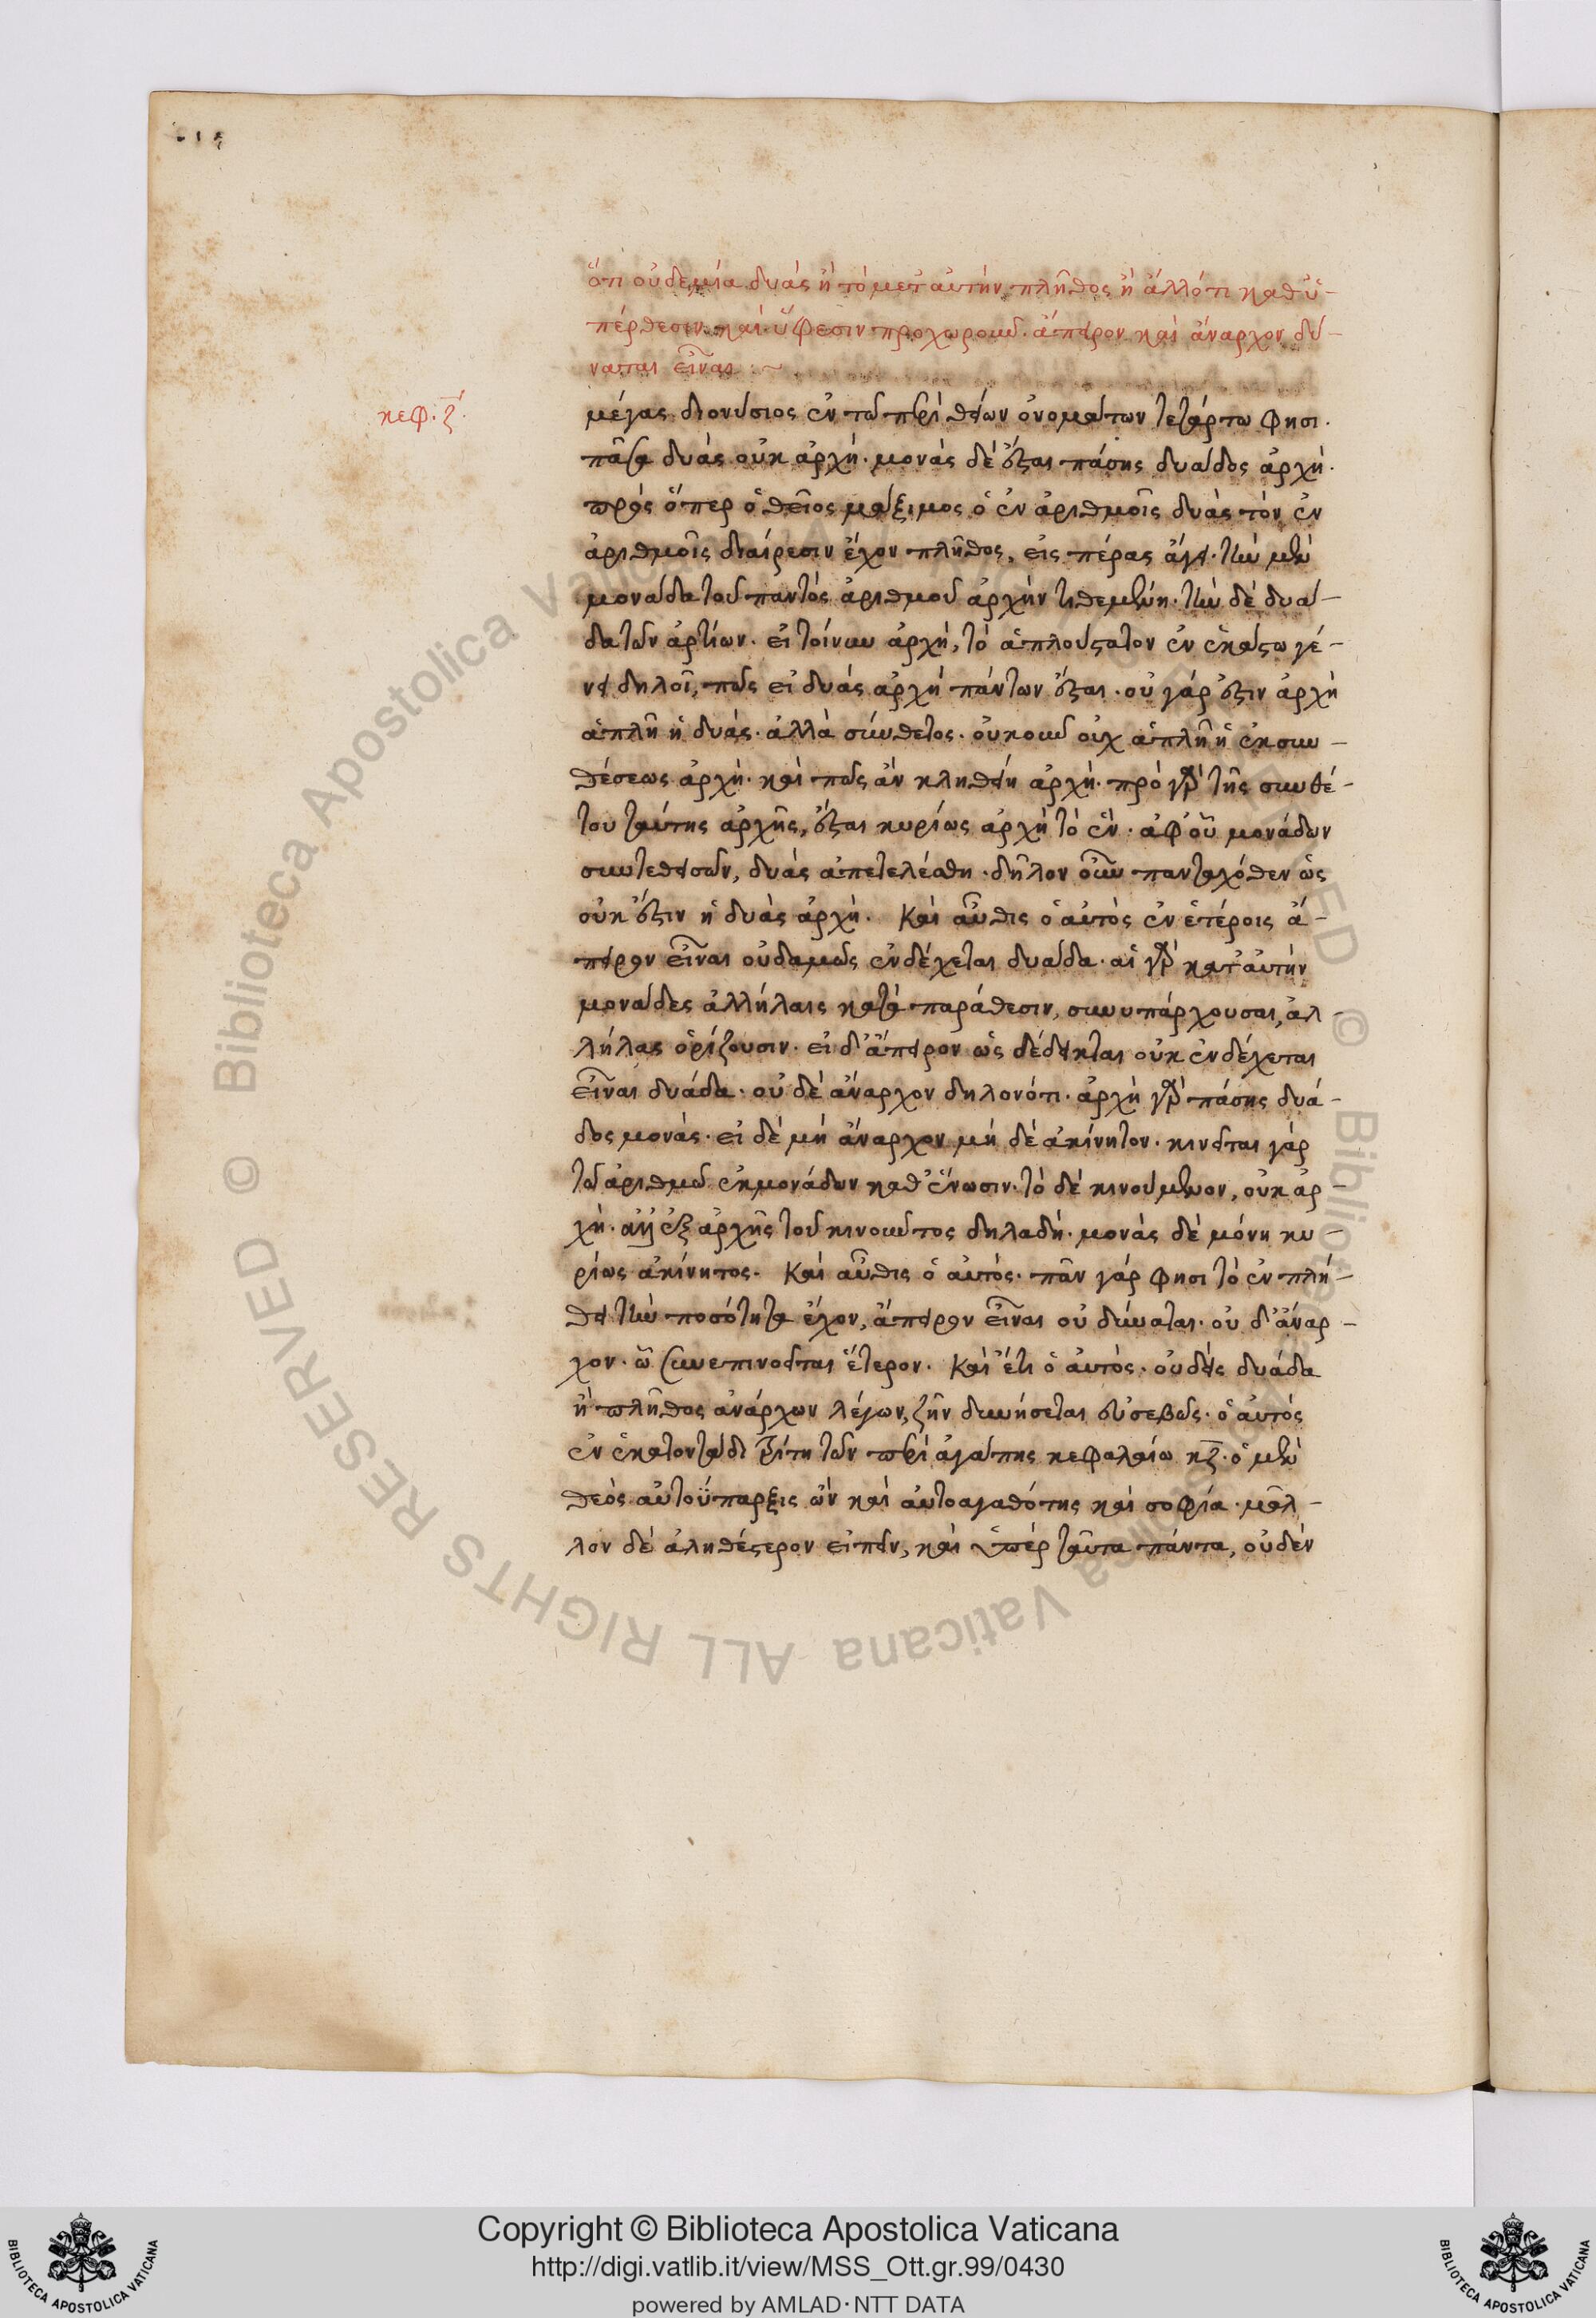 ὅτι οὐδεμία δυάς ἢ τὸ μετ' αὐτὴν πλῆθος ἢ ἄλλό τι καθ' ὑ-
πέρθεσιν καὶ ὕφεσιν προχωροῦν. ἄπειρον καὶ ἄναρχον δύ-
ναται εἶναι :~
κεφ. ζ.
μέγας διονύσιος ἐν τῶ περὶ θείων ὀνομάτων τετάρτω φησι.
πᾶσα δυὰς οὐκ ἀρχή. μονὰς δὲ ἔσται πάσης δυάδος ἀρχή.
πρὸς ὅπερ ὁ θεῖος μάξιμος ὁ ἐν ἀριθμοῖς δυὰς τὸν ἐν
ἀριθμοῖς διαίρεσιν ἔχον πλῆθος, εἰς πέρας ἄγει. τὴν μὲν
μονάδα τοῦ παντὸς ἀριθμοῦ ἀρχὴν τιθεμένη. τὴν δὲ δυά-
δα τῶν ἀρτίων. εἰ τοίνυν ἀρχὴ, τὸ ἁπλούστατον ἐν ἑκάστω γέ-
νει δηλοῖ, πῶς εἰ δυάς ἀρχὴ πάντων ἔσται. οὐ γάρ ἐστιν ἀρχὴ
ἁπλῆ ἡ δυάς. ἀλλὰ σύνθετος. οὐκοῦν οὐχ ἁπλῆ ἡ ἐκ συν-
θέσεως ἀρχή. καὶ πῶς ἂν κληθείη ἀρχή. πρὸ γὰρ τῆς συνθέ-
του ταύτης ἀρχῆς, ἔσται κυρίως ἀρχὴ τὸ ἕν. ἀφ' οὗ μονάδων
συντεθεισῶν, δυάς ἀπετελέσθη. δῆλον οὖν πανταχόθεν ὡς
οὐκ ἔστιν ἡ δυὰς ἀρχή. Καὶ αὖθις ὁ αὐτὸς ἐν ἑτέροις ἄ-
πειρον εἶναι οὐδαμῶς ἐνδέχεται δυάδα. αἱ γὰρ κατ' αὐτὴν
μονάδες ἀλλήλαις κατὰ παράθεσιν, συνυπάρχουσαι, ἀλ-
λήλας ὁρίζουσιν. εἰ δ' ἄπειρον ὡς δέδεικται οὐκ ἐνδέχεται
εἶναι δυάδα. οὐ δὲ ἄναρχον δηλονότι. ἀρχὴ γὰρ πάσης δυά-
δος μονάς. εἰ δὲ μὴ ἄναρχον μὴ δὲ ἀκίνητον. κινεῖται γάρ
τῶ ἀριθμῶ ἐκ μονάδων καθ' ἕνωσιν. τὸ δὲ κινούμενον, οὐκ ἀρ-
χή. ἀλλ' ἐξ ἀρχῆς τοῦ κινοῦντος δηλαδή. μονὰς δὲ μόνη κυ-
ρίως ἀκίνητος. Καὶ αὖθις ὁ αὐτός. πᾶν γάρ φησι τὸ ἐν πλή-
θει τὴν ποσότητα ἔχον, ἄπειρον εἶναι οὐ δύναται. οὐ δ' ἄναρ-
χον. ὧ συνεπινοεῖται ἕτερον. Καὶ ἔτι ὁ αὐτός. οὐδεὶς δυάδα
ἢ πλῆθος ἀνάρχων λέγων, ζῆν δυνήσεται εὐσεβῶς. ὁ αὐτός
ἐν ἑκατοντάδι τρίτη τῶν περὶ ἀγάπης κεφαλαίω κζ. ὁ μὲν
θεὸς αὐτοΰπαρξις ὢν καὶ αὐτοαγαθότης καὶ σοφία. μᾶλ-
λον δὲ ἀληθέστερον εἰπεῖν, καὶ ὑπὲρ ταῦτα πάντα, οὐδὲν
© Biblioteca Apostolica Vaticana ALL RIGHTS RESERVED
Copyright © Biblioteca Apostolica Vaticana
http://digi.vatlib.it/view/MSS_Ott.gr.99/0430
powered by AMLAD·NTT DATA
BIBLIOTECA APOSTOLICA VATICANA
BIBLIOTECA APOSTOLICA VATICANA